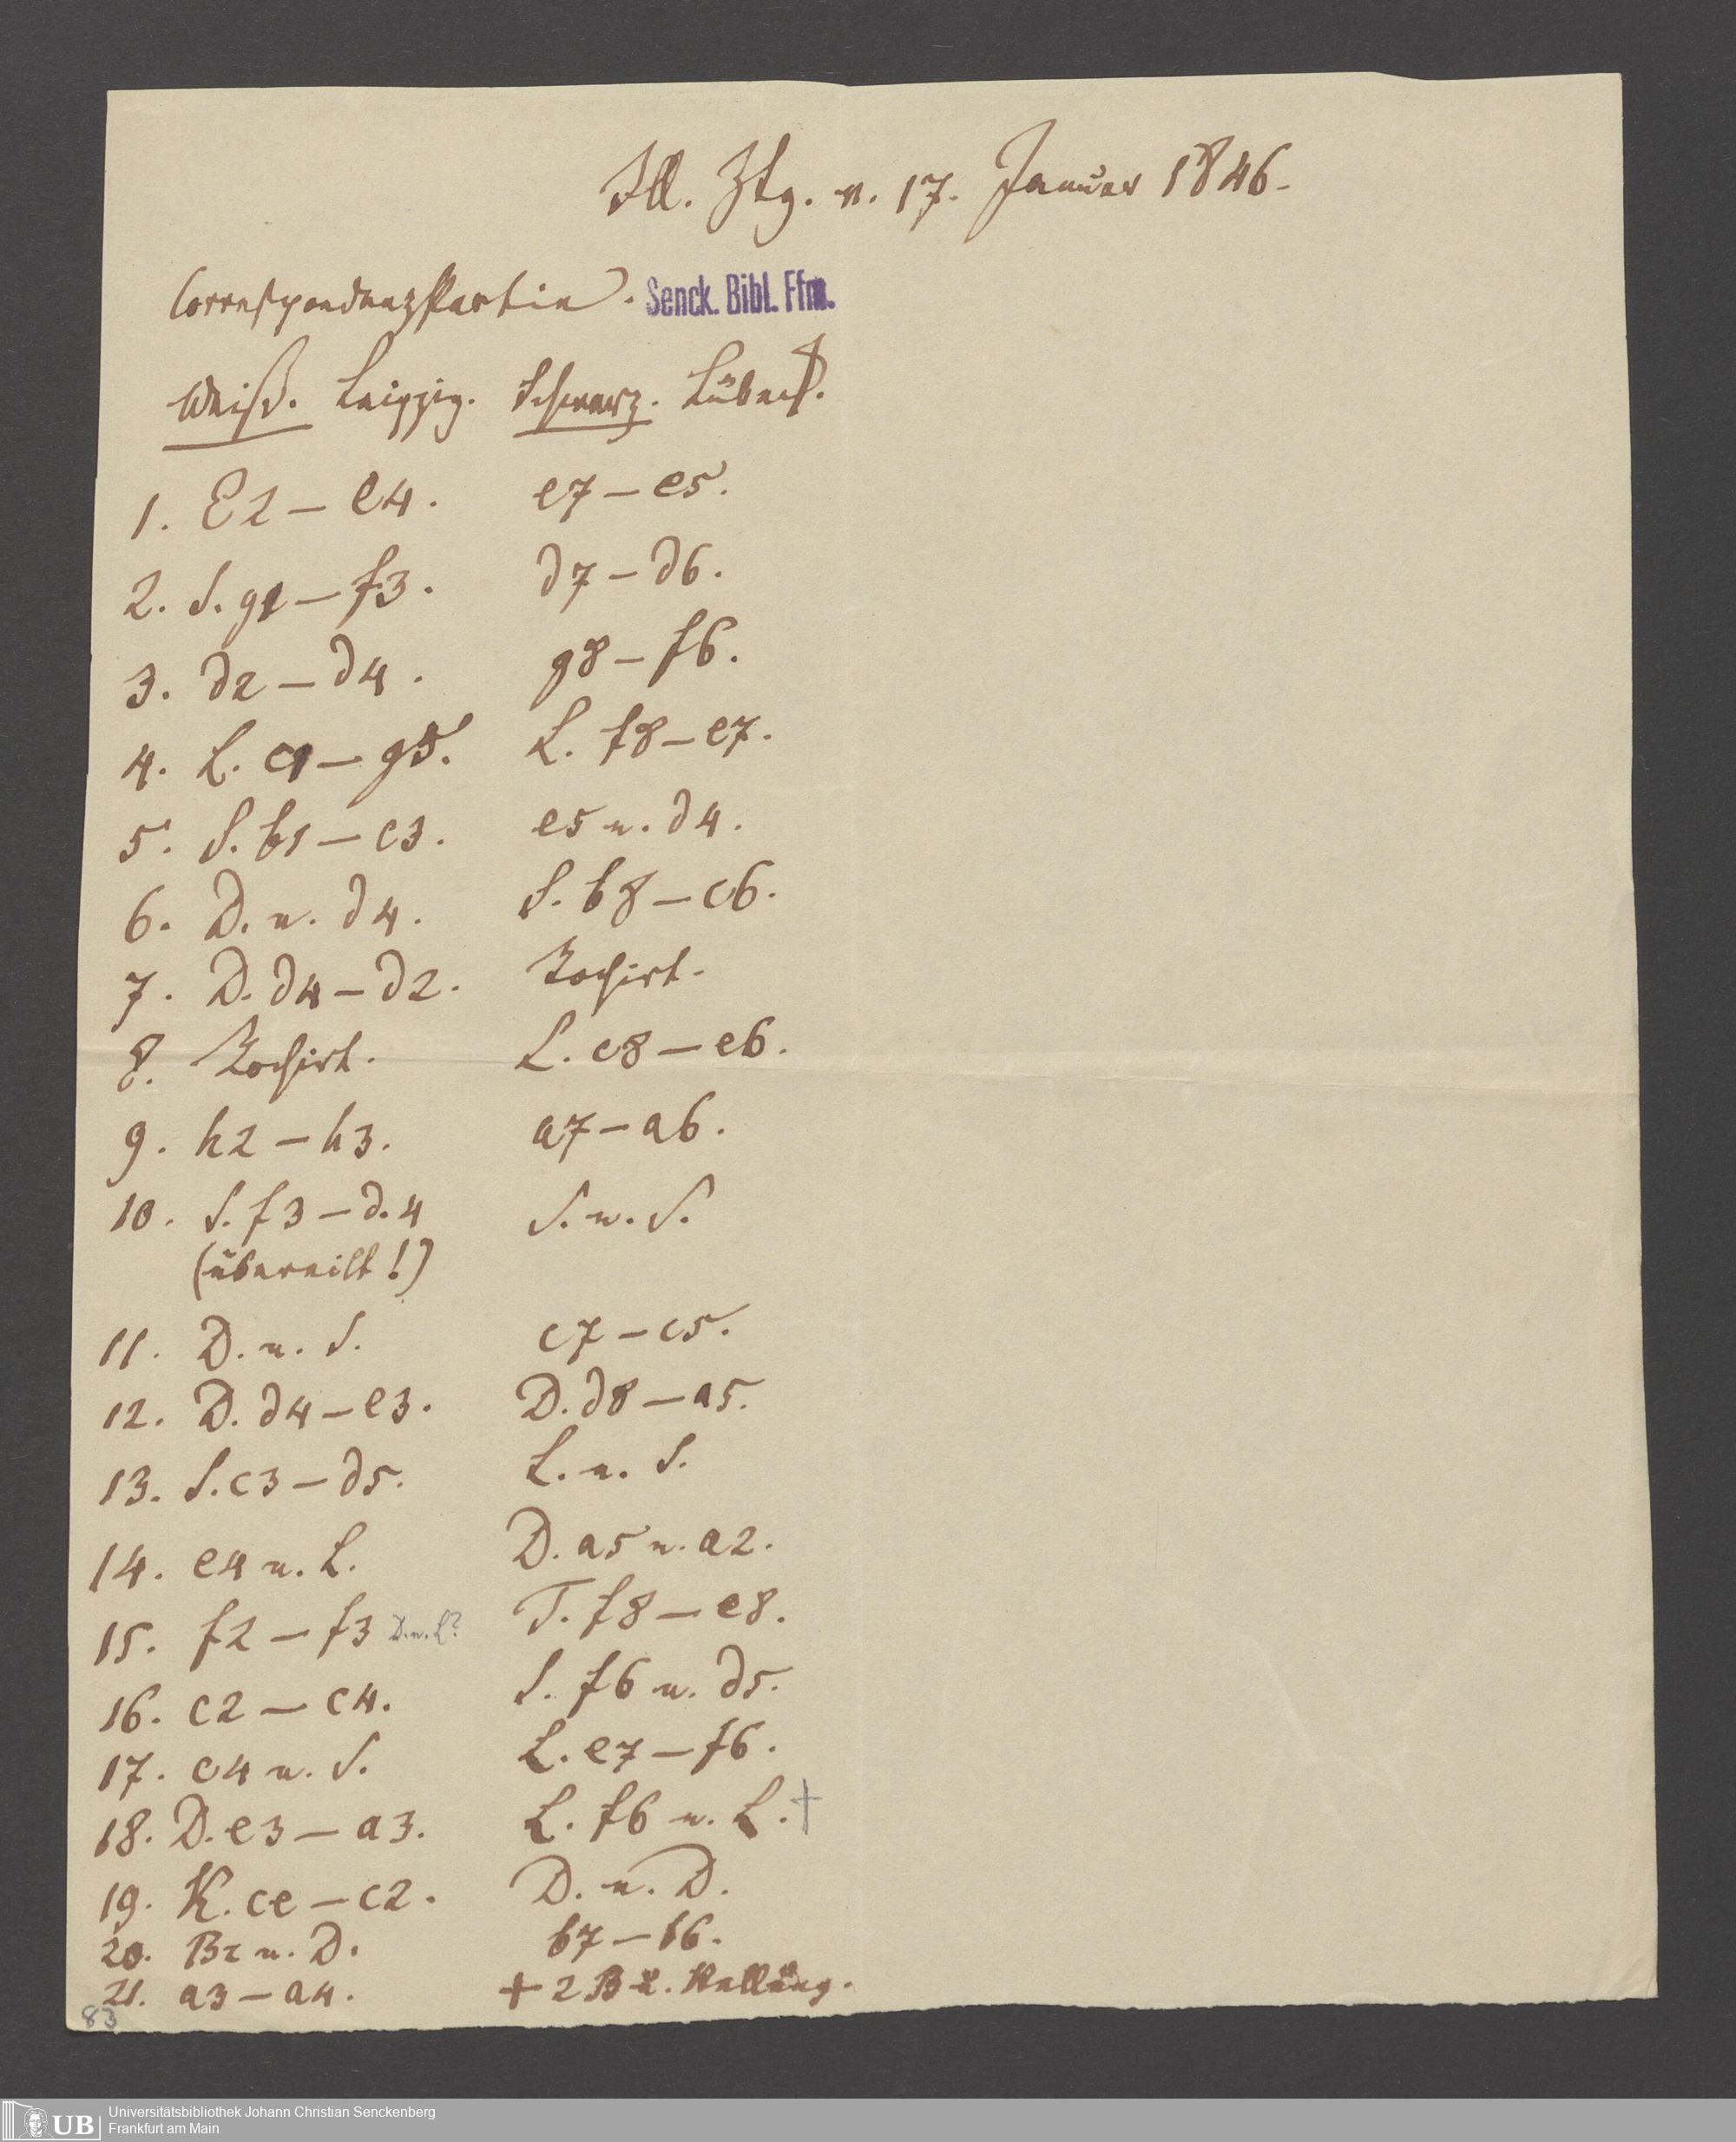 Ill. Ztg. v. 17. Januar 1846.
Correspondenzpartie. Senck. Bibl. Ffm.
Weiß. Leipzig. Schwarz. Lübeck.
1. E2 – e4. e7 – e5.
2. S. g1 – f3. d7 – d6.
3. d2 – d4. g8 – f6.
4. L. c1 – g5. L. f8 – e7.
5. S. b1 – c3. e5 n. d4.
6. D. n. d4. S. b8 – c6.
7. D. d4 – d2. Rochirt.
8. Rochirt. L. c8 – e6.
9. h2 – h3. a7 – a6.
10. S. f3 – d.4 S. n. S.
(übereilt!)
11. D. n. S. c7 – c5.
12. D. d4 – e3. D. d8 – a5.
13. S. c3 – d5. L. n. S.
14. e4 n. L. D. a5 n. a2.
15. f2 – f3 D. n. L? T. f8 – e8.
16. c2 – c4. S. f6 n. d5.
17. c4 n. S. L. e7 – f6.
18. D. e3 – a3. L. f6 n. L. †
19. K. ce – c2. D. n. D.
20. B2 n. D. b7 – b6.
21. a3 – a4. + 2 B u. Stellung.
83
UB
Universitätsbibliothek Johann Christian Senckenberg
Frankfurt am Main